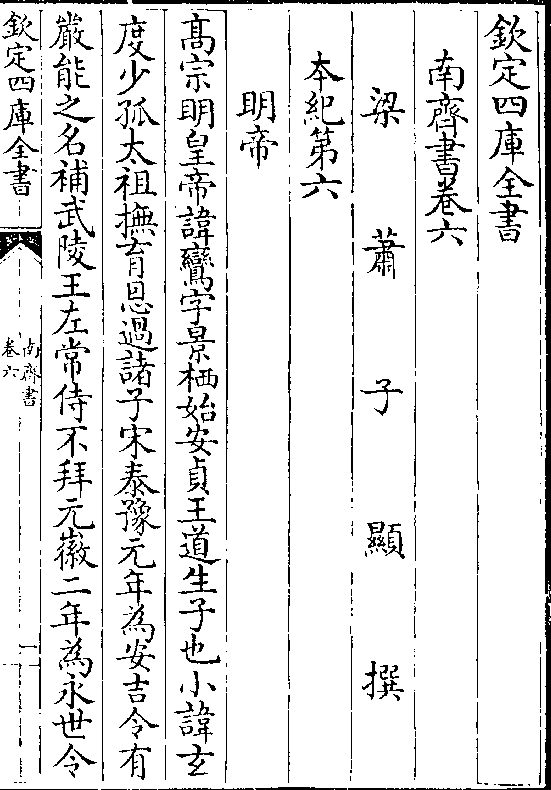 欽定四庫全書
南齊書卷六
梁蕭子顯撰
本紀第六
明帝
髙宗明皇帝諱鸞字景栖始安貞王道生子也小諱玄
度少孤太祖撫育恩過諸子宋泰豫元年為安吉令有
嚴能之名補武陵王左常侍不拜元徽二年為永世令
欽定四庫全書
南齊書
卷六
一